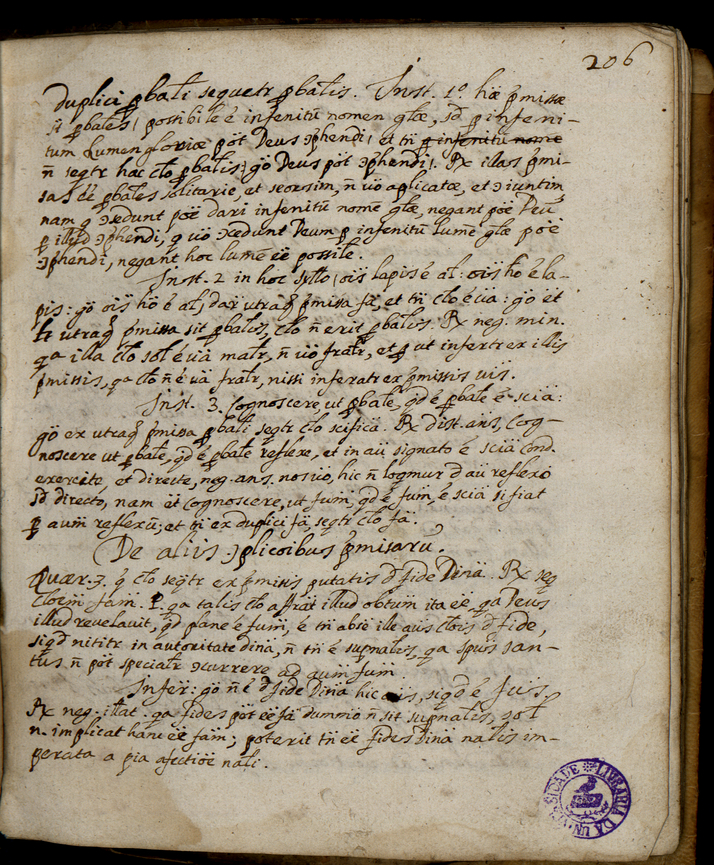 206
duplici ꝓbali sequetr ꝓbalis. Inst. 1º hæ p̃missæ
st ꝓbales, possibile é infenitũ nomen glæ, sd ꝑ infeni-
tum Lumen gloriæ pöt Deus ꝯphendi, et tñ ꝑ infenitũ nome
ñ seqtr hæc clo ꝓbalis; gö Deus pöt ꝯphendi. Rx illas p̃mi-
sas ëë ꝓbales solitarie, et seorsim, ñ üo aplicatæ, et ꝯiuntim,
nam q ꝯcedunt pöë dari infenitũ nome glæ, negant pöë Deũ
ꝑ illud ꝯphendi, q üo ꝯcedunt Deum ꝑ infenitũ lumë glæ pöë
ꝯphendi, negant hoc lumẽ ëë possile.
Inst. 2 in hoc syllo, öis lapis é al: öis hö é la-
pis: gö öis hö é al, dar utraq p̃missa fã, et tñ clo é üa: gö et
lt utraq p̃missa sit ꝓbalis, clo ñ erit ꝓbalis. Rx neg. min.
qa illa clo sol é üã matr, ñ üo fratr, et ꝑ ut infertr ex illis
p̃missis, qa clo ñ é üã fratr, nissi inferatr ex p̃missis üis.
Inst. 3. Cognoscere, ut ꝓbale, qd é ꝓbale é sciã:
gö ex utraq p̃missa ꝓbali seqtr clo scificã. Rx dist. ans, Cog-
noscere ut ꝓbale, qd é ꝓbale reflexe, et in aũ signato é sciã cond.
exercite, et directe, neg. ans. nos üo, hic ñ loqmur d aũ reflexo
sd directo, nam ët Cognoscere, ut fum, qd é fum, é sciã si fiat
ꝑ aum reflexũ; et tñ ex duplici fã, seqtr clo fã.
De aliis ꝯplicoibus p̃misarũ.
Quær. 3. q clo seqtr ex p̃missis putatis d fide Dinã. Rx seq
Cloem fam. P. qa talis clo affrãt illud obtum ita ëë, qa Deus
illud revelavit, qd plane é fum, é tñ absë ille aus Clois d fide,
siqd nititr in autoritate dinã, ñ tñ é supnalis, qa spus san-
tus ñ pöt specialr ꝯcurrere ad aum fum.
Infer: gö ñ é d fide Dinã hic aus, siqd é fuis,
Rx neg. illat. qa fides pöt ëë fã dummo ñ sit supnalis, sol
n. implicat hanc ëë fam; poterit tñ ëë fides Dinã nalis im-
perata a pia afectiöë nali.
LIVRARIA DA UNIVERSIDADE